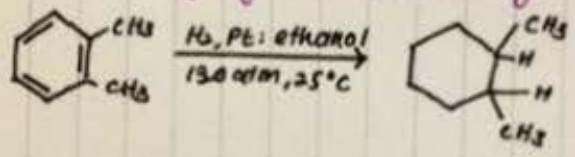 CH3
CH3
H2, Pt; ethanol
130 atm, 25°C
CH3
H
H
CH3